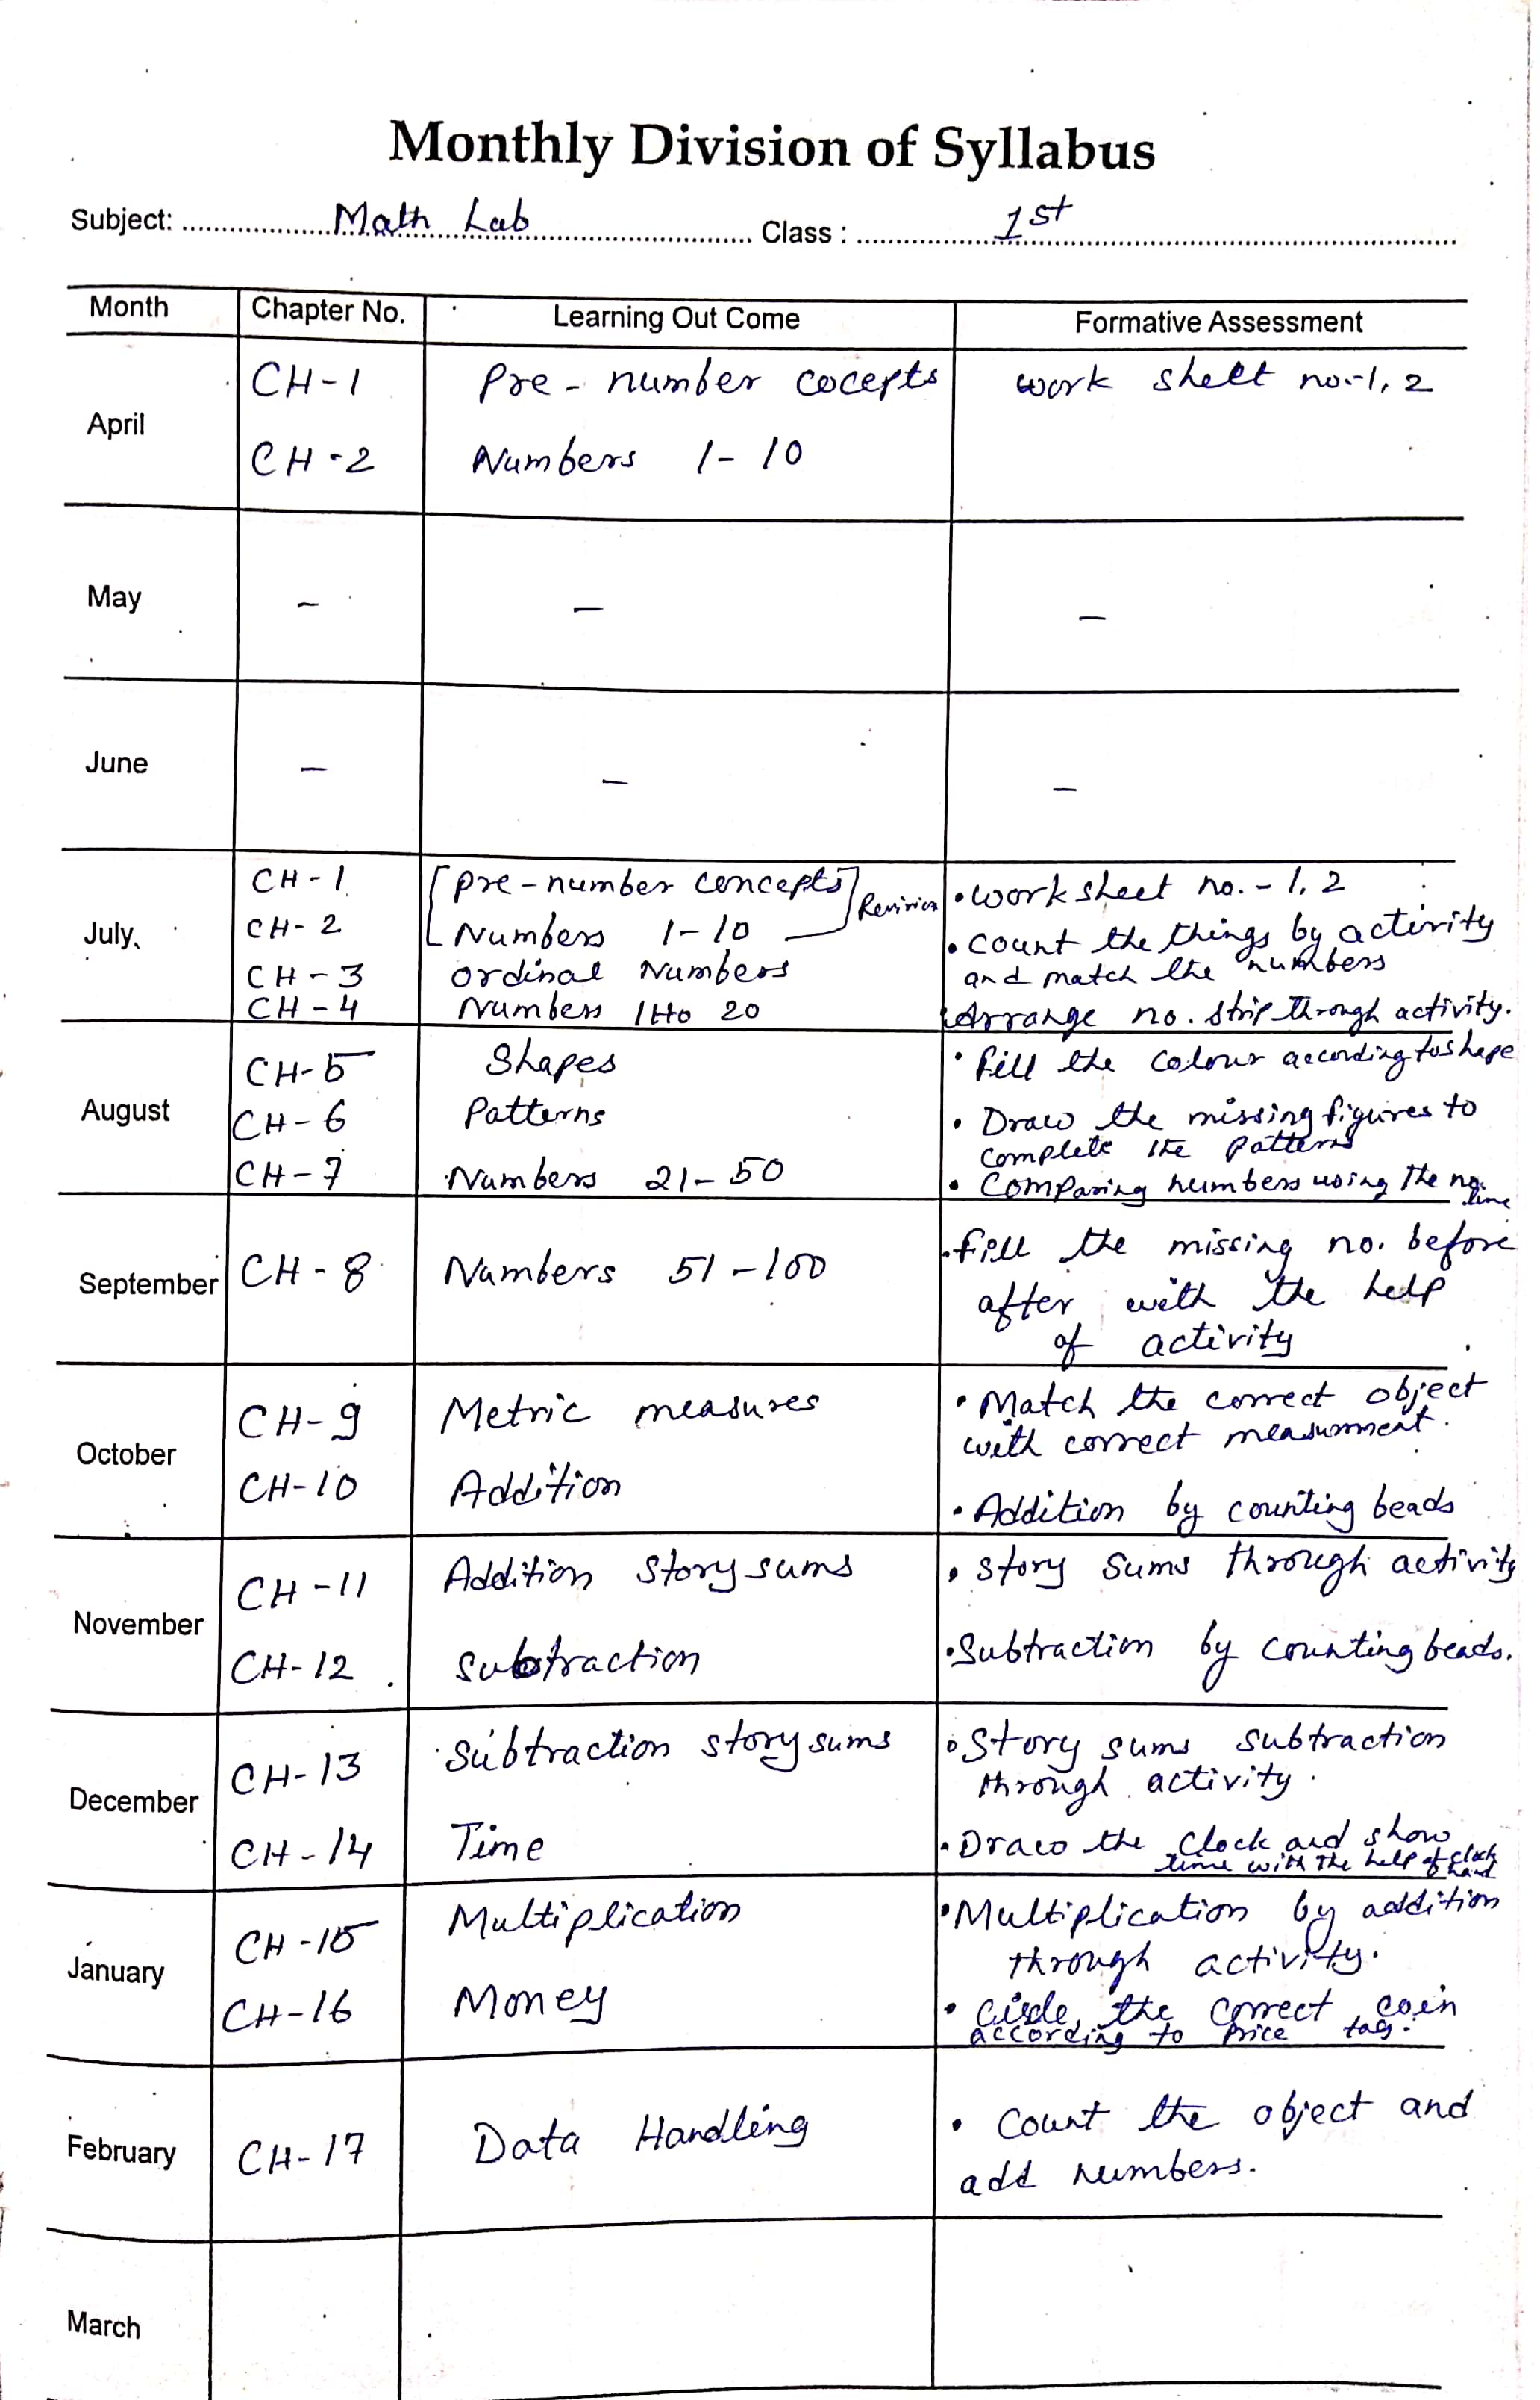 Monthly Division of Syllabus
Subject: Math Lab Class : 1st
Month Chapter No. Learning Out Come Formative Assessment
April
CH-1 Pre-number cocepts work sheet no.-1, 2
CH-2 Numbers 1-10
May - - -
June - - -
July
CH-1 [Pre-number concepts] Revision • work sheet no. - 1, 2
CH-2 Numbers 1-10 • count the things by activity
and match the numbers
CH-3 ordinal Numbers
CH-4 Numbers 11to 20 Arrange no. strip through activity.
August
CH-5 Shapes • fill the colour according to shape
CH-6 Patterns • Draw the missing figures to
complete the patterns
CH-7 Numbers 21-50 • Comparing numbers using the no.
line
September CH-8 Numbers 51-100 • fill the missing no. before
after with the help
of activity
October
CH-9 Metric measures • Match the correct object
with correct measurment.
CH-10 Addition • Addition by counting beads
November
CH-11 Addition story sums • story sums through activity
CH-12 Subtraction • Subtraction by counting beads.
December
CH-13 Subtraction story sums • Story sums subtraction
through activity.
CH-14 Time • Draw the clock and show
time with the help of clock
hand
January
CH-15 Multiplication • Multiplication by addition
through activity.
CH-16 Money • Circle the correct coin
according to price tag.
February CH-17 Data Handling • Count the object and
add numbers.
March